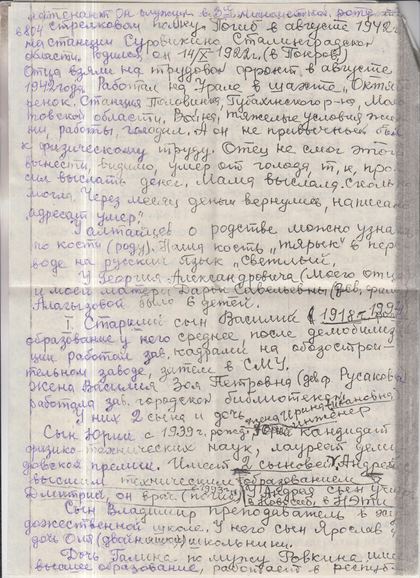 Он служил в 3ей минометной роте
в 804 стрелковом полку. Погиб в августе 1942 г.
на станции Суровикино Сталинградской
области. Родился он 14/X-1922 г. (в Покров)
Отца взяли на трудовой фронт, в августе
1942 года. Работал на Урале в шахте "Октяб
ренок. Станция Половинка, Губахинского р-на, Моло
товской области. Война, тяжелые условия жиз
ни, работы, голодал. А он не привычный был
к физическому труду. Отец не смог этого
вынести, видимо, умер от голода, т.к. про-
сил выслать денег. Мама выслала. Сколь
могла. Через месяц деньги вернулись, написано
"адресат умер."
У алтайцев о родстве можно узнать
по кости (роду). Наша кость "тярык" в пере
воде на русский язык "светлый."
У Георгия Александровича (моего отца
и моей матери Дарьи Савельевны (дев. фам.
Алагызовой было 6 детей.
I. Старший сын Василий (1918 г.
образование у него среднее, после демобилиза
ции работал зав. кадрами на ободостро
тельном заводе, затем в СМУ.
Жена Василия Зоя Петровна (дев.ф. Русакова
работала зав. городской библиотекой
У них 2 сына и дочь.
жена Ирина Ивановна
инженер
Сын Юрий с 1939 г. рожд. Юрий кандидат
физико-технических наук, лауреат деми
довской премии. Имеет 2 сыновей. Андрей
высшим техническим образованием
Дмитрий, он врач.
Сын Владимир преподаватель в ху
дожественной школе. У него сын Ярослав
дочь Оля (двойняшки) школьники.
Дочь Галина по мужу Ровкина имеет
высшее образование, работает в респуб